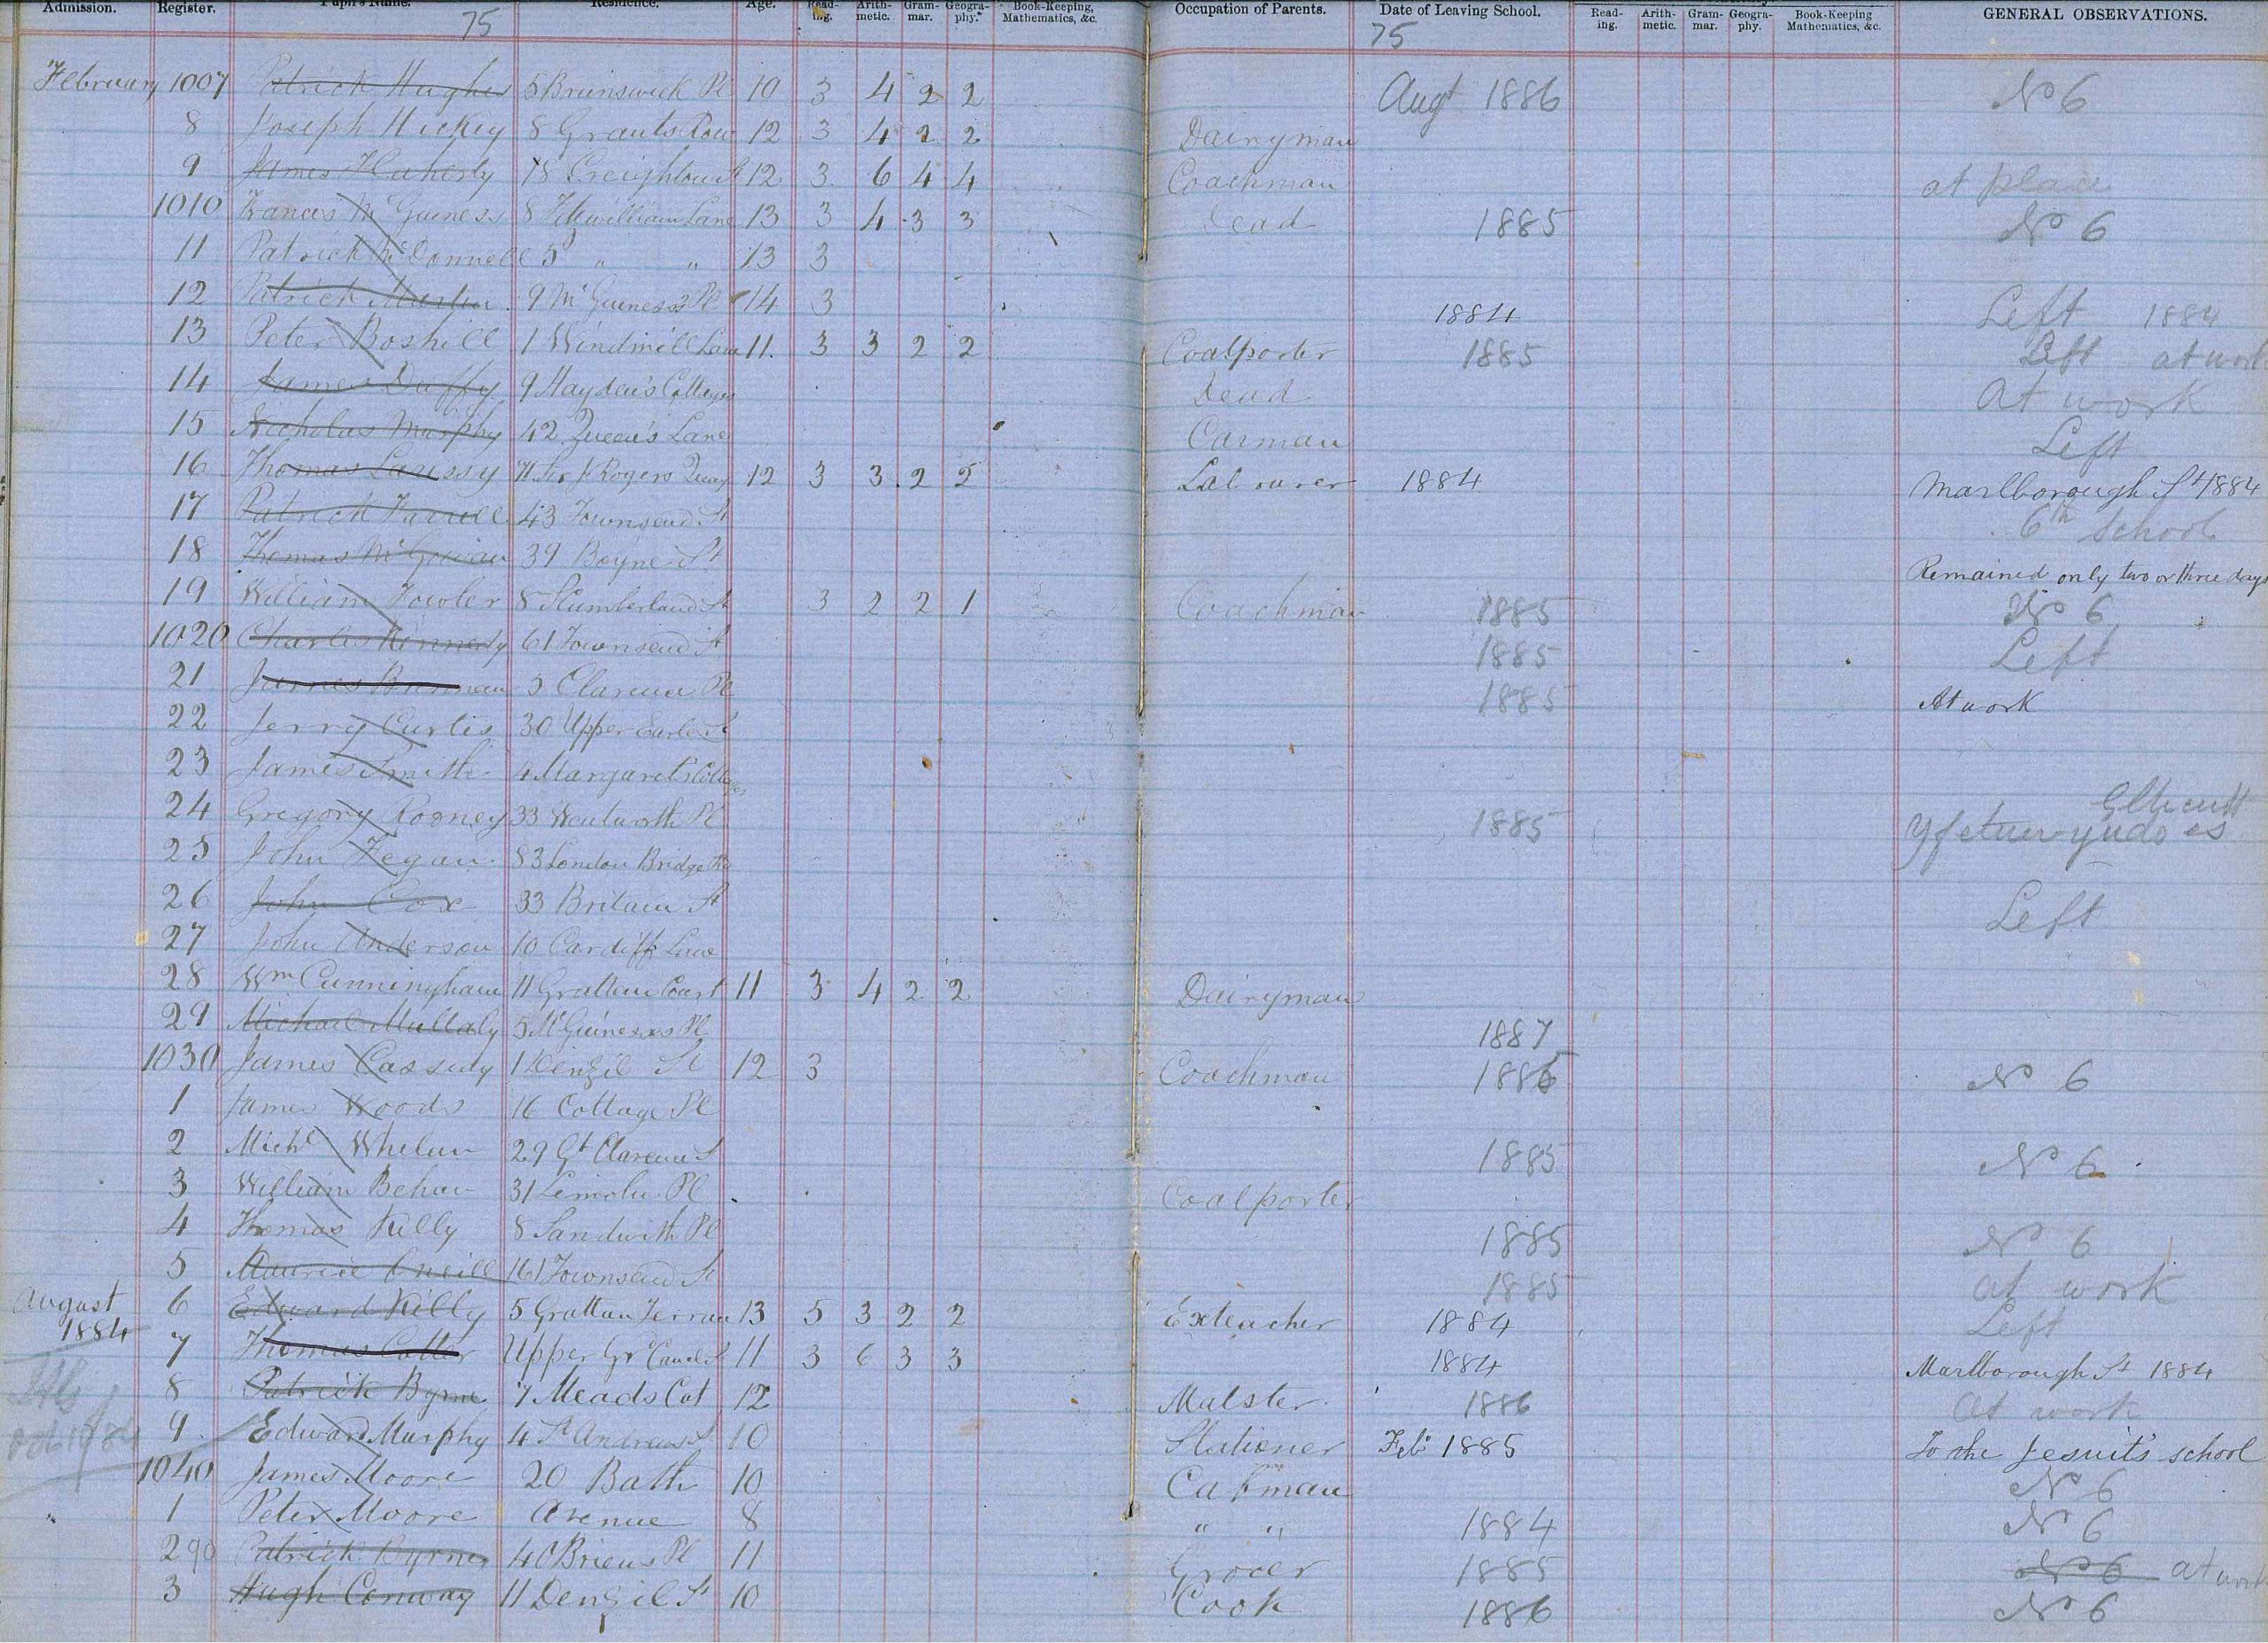 Admission. Register. Pupil's Name. Residence. Age. Read-ing. Arith-metic. Gram-mar. Geogra-phy. Book-Keeping, Mathematics, &c. Occupation of Parents. Date of Leaving School. Read-ing. Arith-metic. Gram-mar. Geogra-phy. Book-Keeping Mathematics, &c. GENERAL OBSERVATIONS.
75 75
February 1007 Patrick Hughes 5 Brunswick Pl 10 3 4 2 2 Augt 1886 No 6
8 Joseph Hickey 8 Grants Row 12 3 4 2 2 Dairyman
9 James Flaherty 18 Creighton St 12 3 6 4 4 Coachman at place
1010 Francis McGuiness 8 Fitzwilliam Lane 13 3 4 3 3 Dead 1885 No 6
11 Patrick McDonnell 5 " " 13 3
12 Patrick Martin 9 McGuiness Pl 14 3 1884 Left 1884
13 Peter Boshill 1 Windmill Lane 11 3 3 2 2 Coalporter 1885 Left at work
14 James Duffy 9 Hayden's Cottages Dead At work
15 Nicholas Murphy 42 Queen's Lane Carman Left
16 Thomas 71 Sir J Rogers Quay 12 3 3 2 2 Labourer 1884 Marlborough St 1884
17 Patrick Farrell 43 Townsend St 6th School
18 Thomas McGowan 39 Boyne St Remained only two or three days
19 William Fowler 8 Slumberland St 3 2 2 1 Coachman 1885 No 6
1020 Charles Kennedy 61 Townsend St 1885 Left
21 James Brennan 5 Clarence Pl 1885 At work
22 Jerry Curtis 30 Upper Earle St
23 James Smith 4 Margaret's Cottages
24 Gregory Rooney 33 Wentworth Pl 1885
25 John Fegan 83 London Bridge Rd
26 John Cox 33 Britain St Left
27 John Anderson 10 Cardiff Lane
28 Wm Cunningham 11 Grattan Court 11 3 4 2 2 Dairyman
29 Michael Mullaly 5 McGuiness Pl 1887
1030 James Cassidy 1 Denzil St 12 3 Coachman 1886 No 6
1 James Woods 16 Cottage Pl
2 Michl Whelan 29 Gt Clarence St 1885 No 6
3 William Behan 31 Lincoln Pl Coalporter
4 Thomas Kelly 8 Sandwith Pl 1885 No 6
5 Maurice Oneill 161 Townsend St 1885 at work
August 1884 6 Edward Kelly 5 Grattan Terrace 13 5 3 2 2 Exteacher 1884 Left
7 Thomas Cotter Upper Gr Canal St 11 3 6 3 3 1884 Marlborough St 1884
8 Patrick Byrne 7 Meads Cot 12 Malster 1886 At work
9 Edward Murphy 4 St Andrew St 10 Stationer Feb 1885 To the Jesuit's school
1040 James Moore 20 Bath 10 Cabman No 6
1 Peter Moore Avenue 8 " " 1884 No 6
290 Patrick Byrnes 4 OBriens Pl 11 Grocer 1885 No 6 at work
3 Hugh Conway 11 Denzil St 10 Cook 1886 No 6